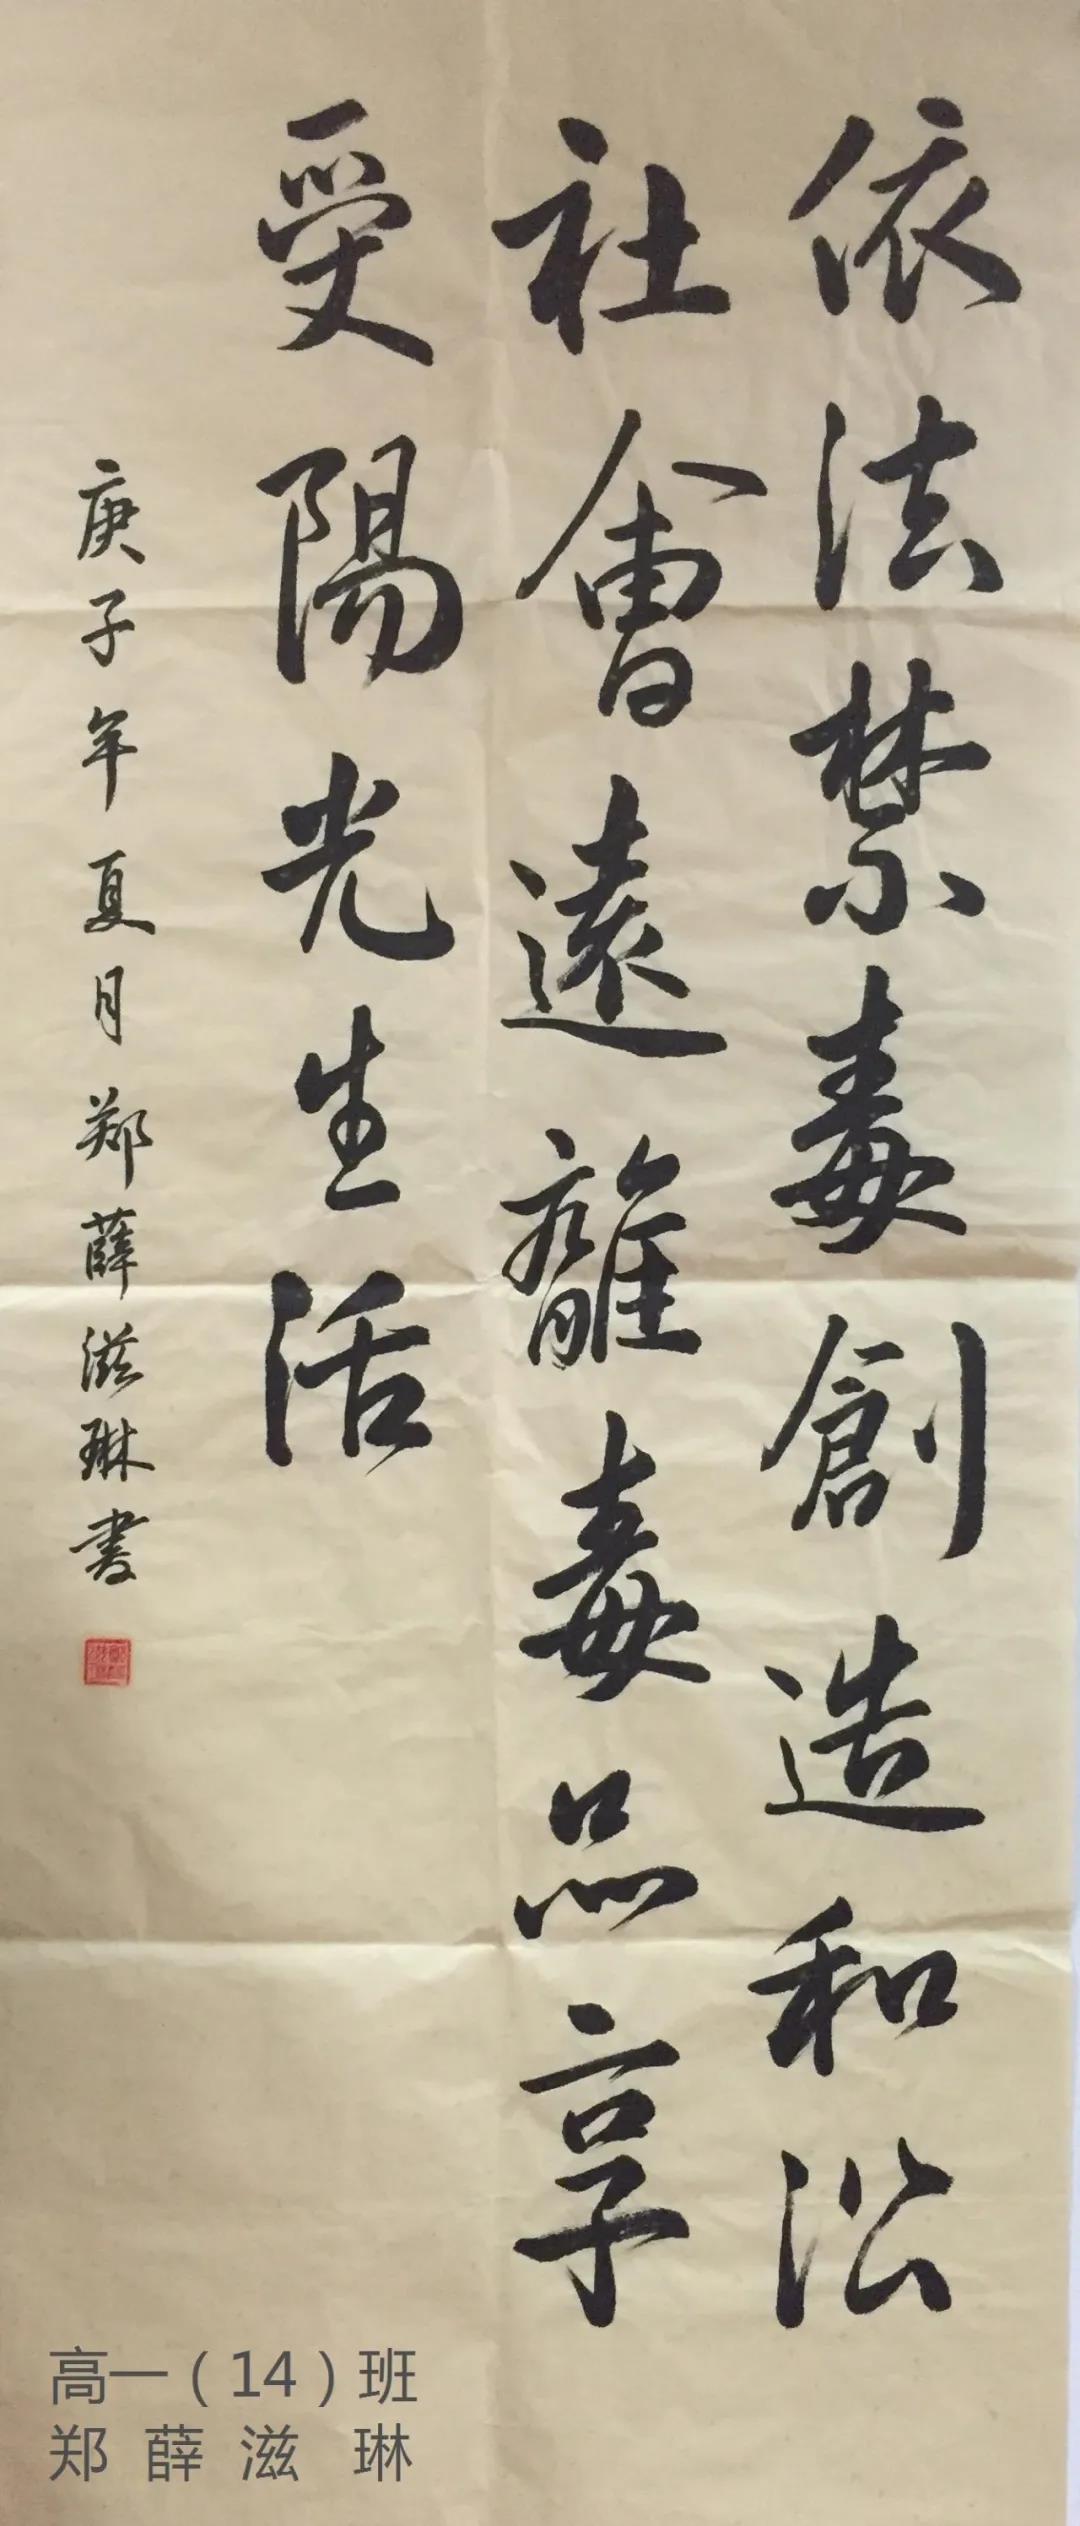 依法禁毒創造和谐
社會遠離毒品享
受陽光生活
庚子年夏月郑薛滋琳書
高一（14）班
郑薛滋琳